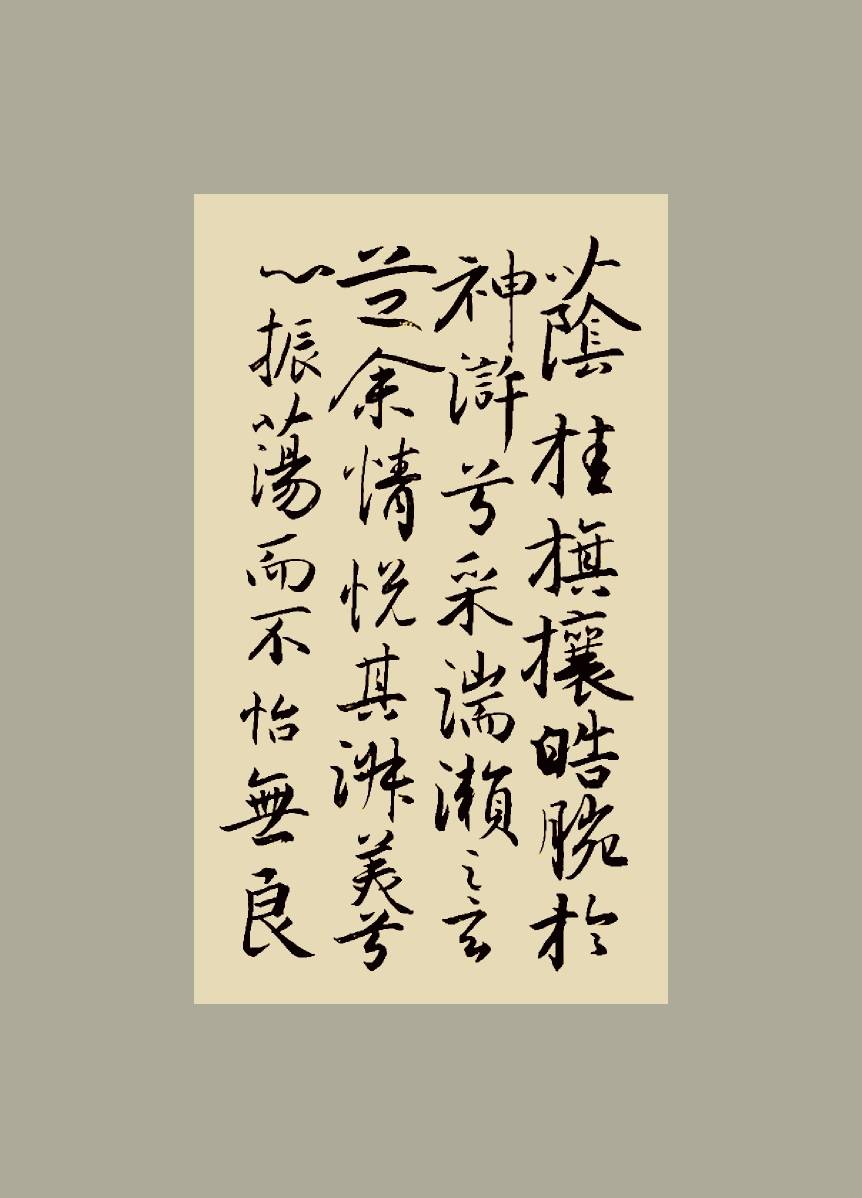 蔭桂旗攘皓腕於
神滸兮采湍瀨之玄
芝余情悅其淑美兮
心振蕩而不怡無良